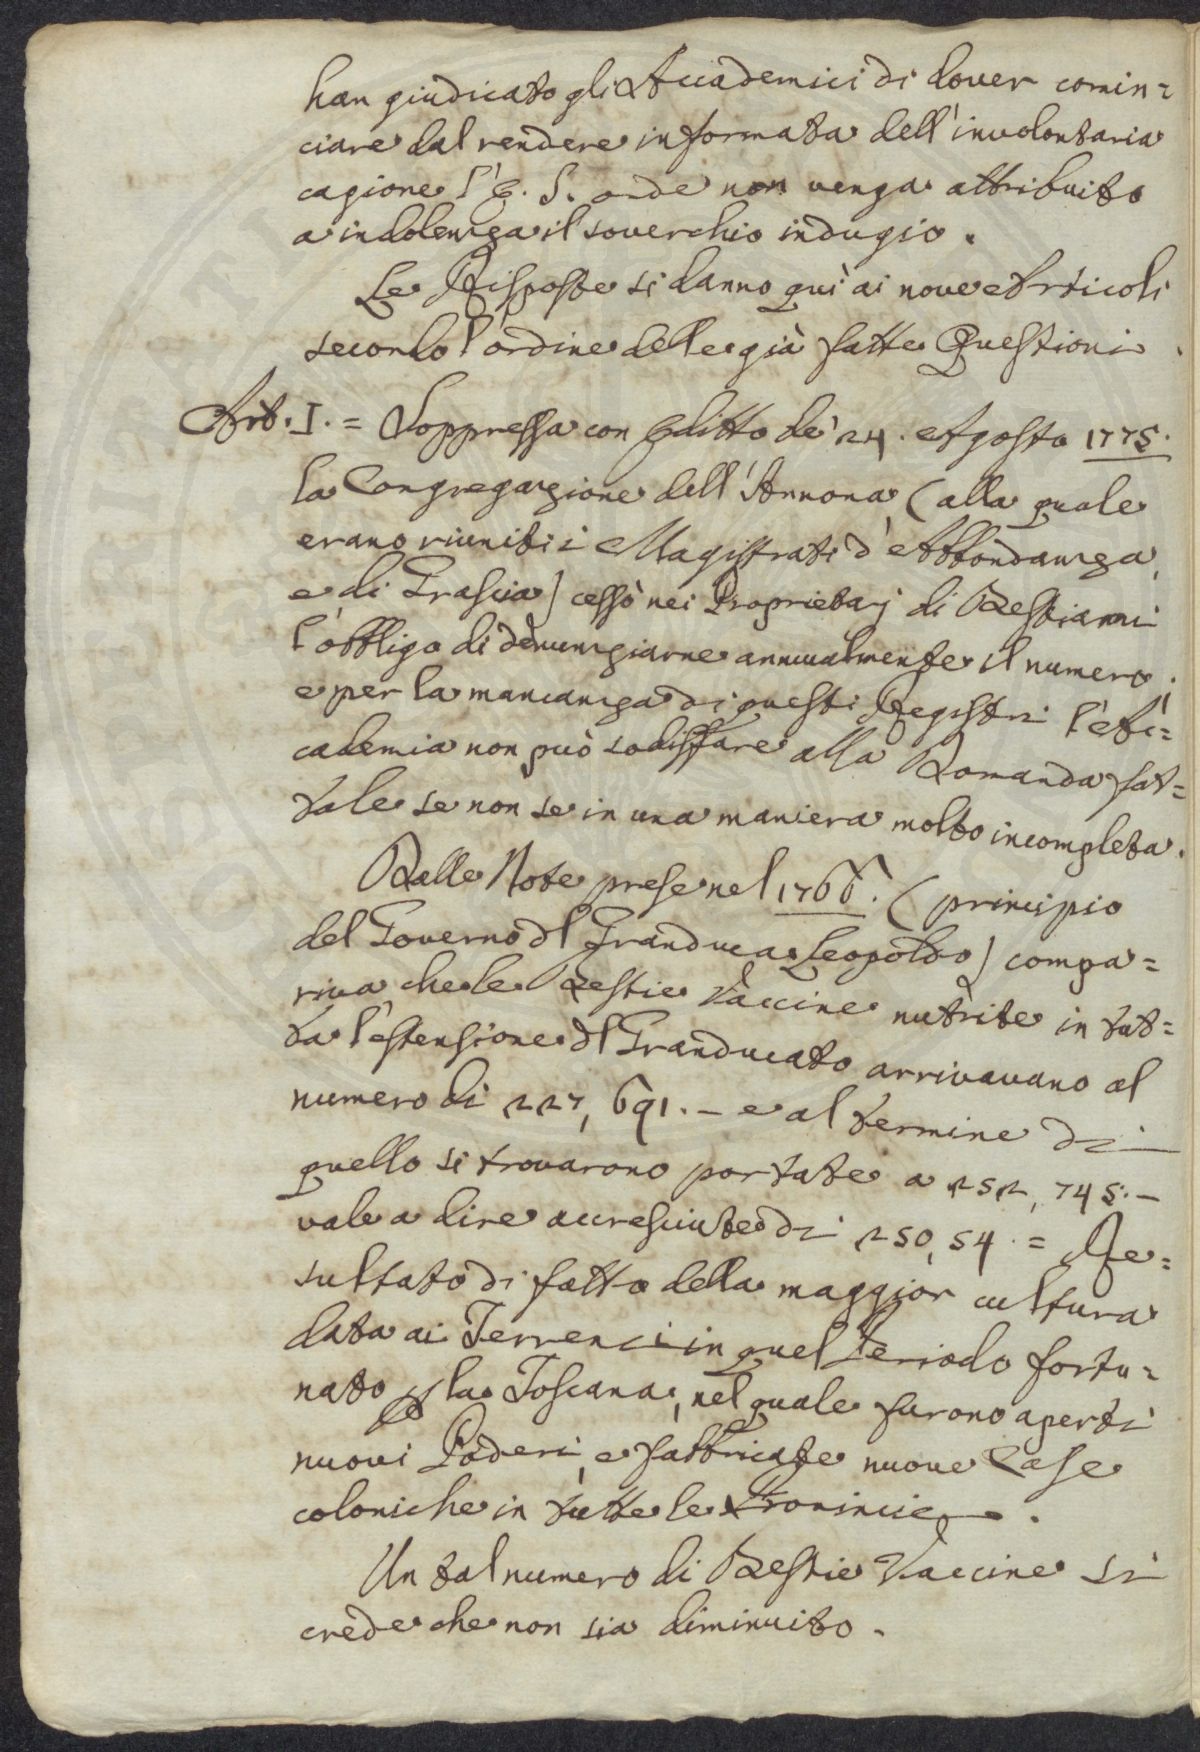 han giudicato gli Accademici di dover comin=
ciare dal rendere informata dell'involontaria
cagione l'E. S. onde non venga attribuito
a indolenza il soverchio indugio.
Le Risposte si danno quì ai nove Articoli
secondo l'ordine delle già fatte Questioni.
Art. I. = Soppressa con Editto de' 24. Agosto 1775.
la Congregazione dell'Annona (alla quale
erano riuniti i Magistrati d'Abbondanza,
e di Grascia) cessò nei Proprietarj di Bestiami
l'obbligo di denunziarne annualmente il numero.
e per la mancanza di questi Registri l'Ac=
cademia non può sodisfare alla Domanda fat=
tale se non se in una maniera molto incompleta.
Dalle Note prese nel 1766. (principio
del Governo dl Granduca Leopoldo) compa=
riva che le Bestie Vaccine nutrite in tut=
ta l'estensione dl Granducato arrivavano al
numero di 227,691. – e al termine di
quello si trovarono portate a 252,745. –
vale a dire accresciute di 250,54. = Re=
sultato di fatto della maggior cultura
data ai Terreni in quel Periodo fortu=
nato p la Toscana, nel quale furono aperti
nuovi Poderi, e fabbricate nuove Case
coloniche in tutte le Provincie.
Un tal numero di Bestie Vaccine si
crede che non sia diminuito.